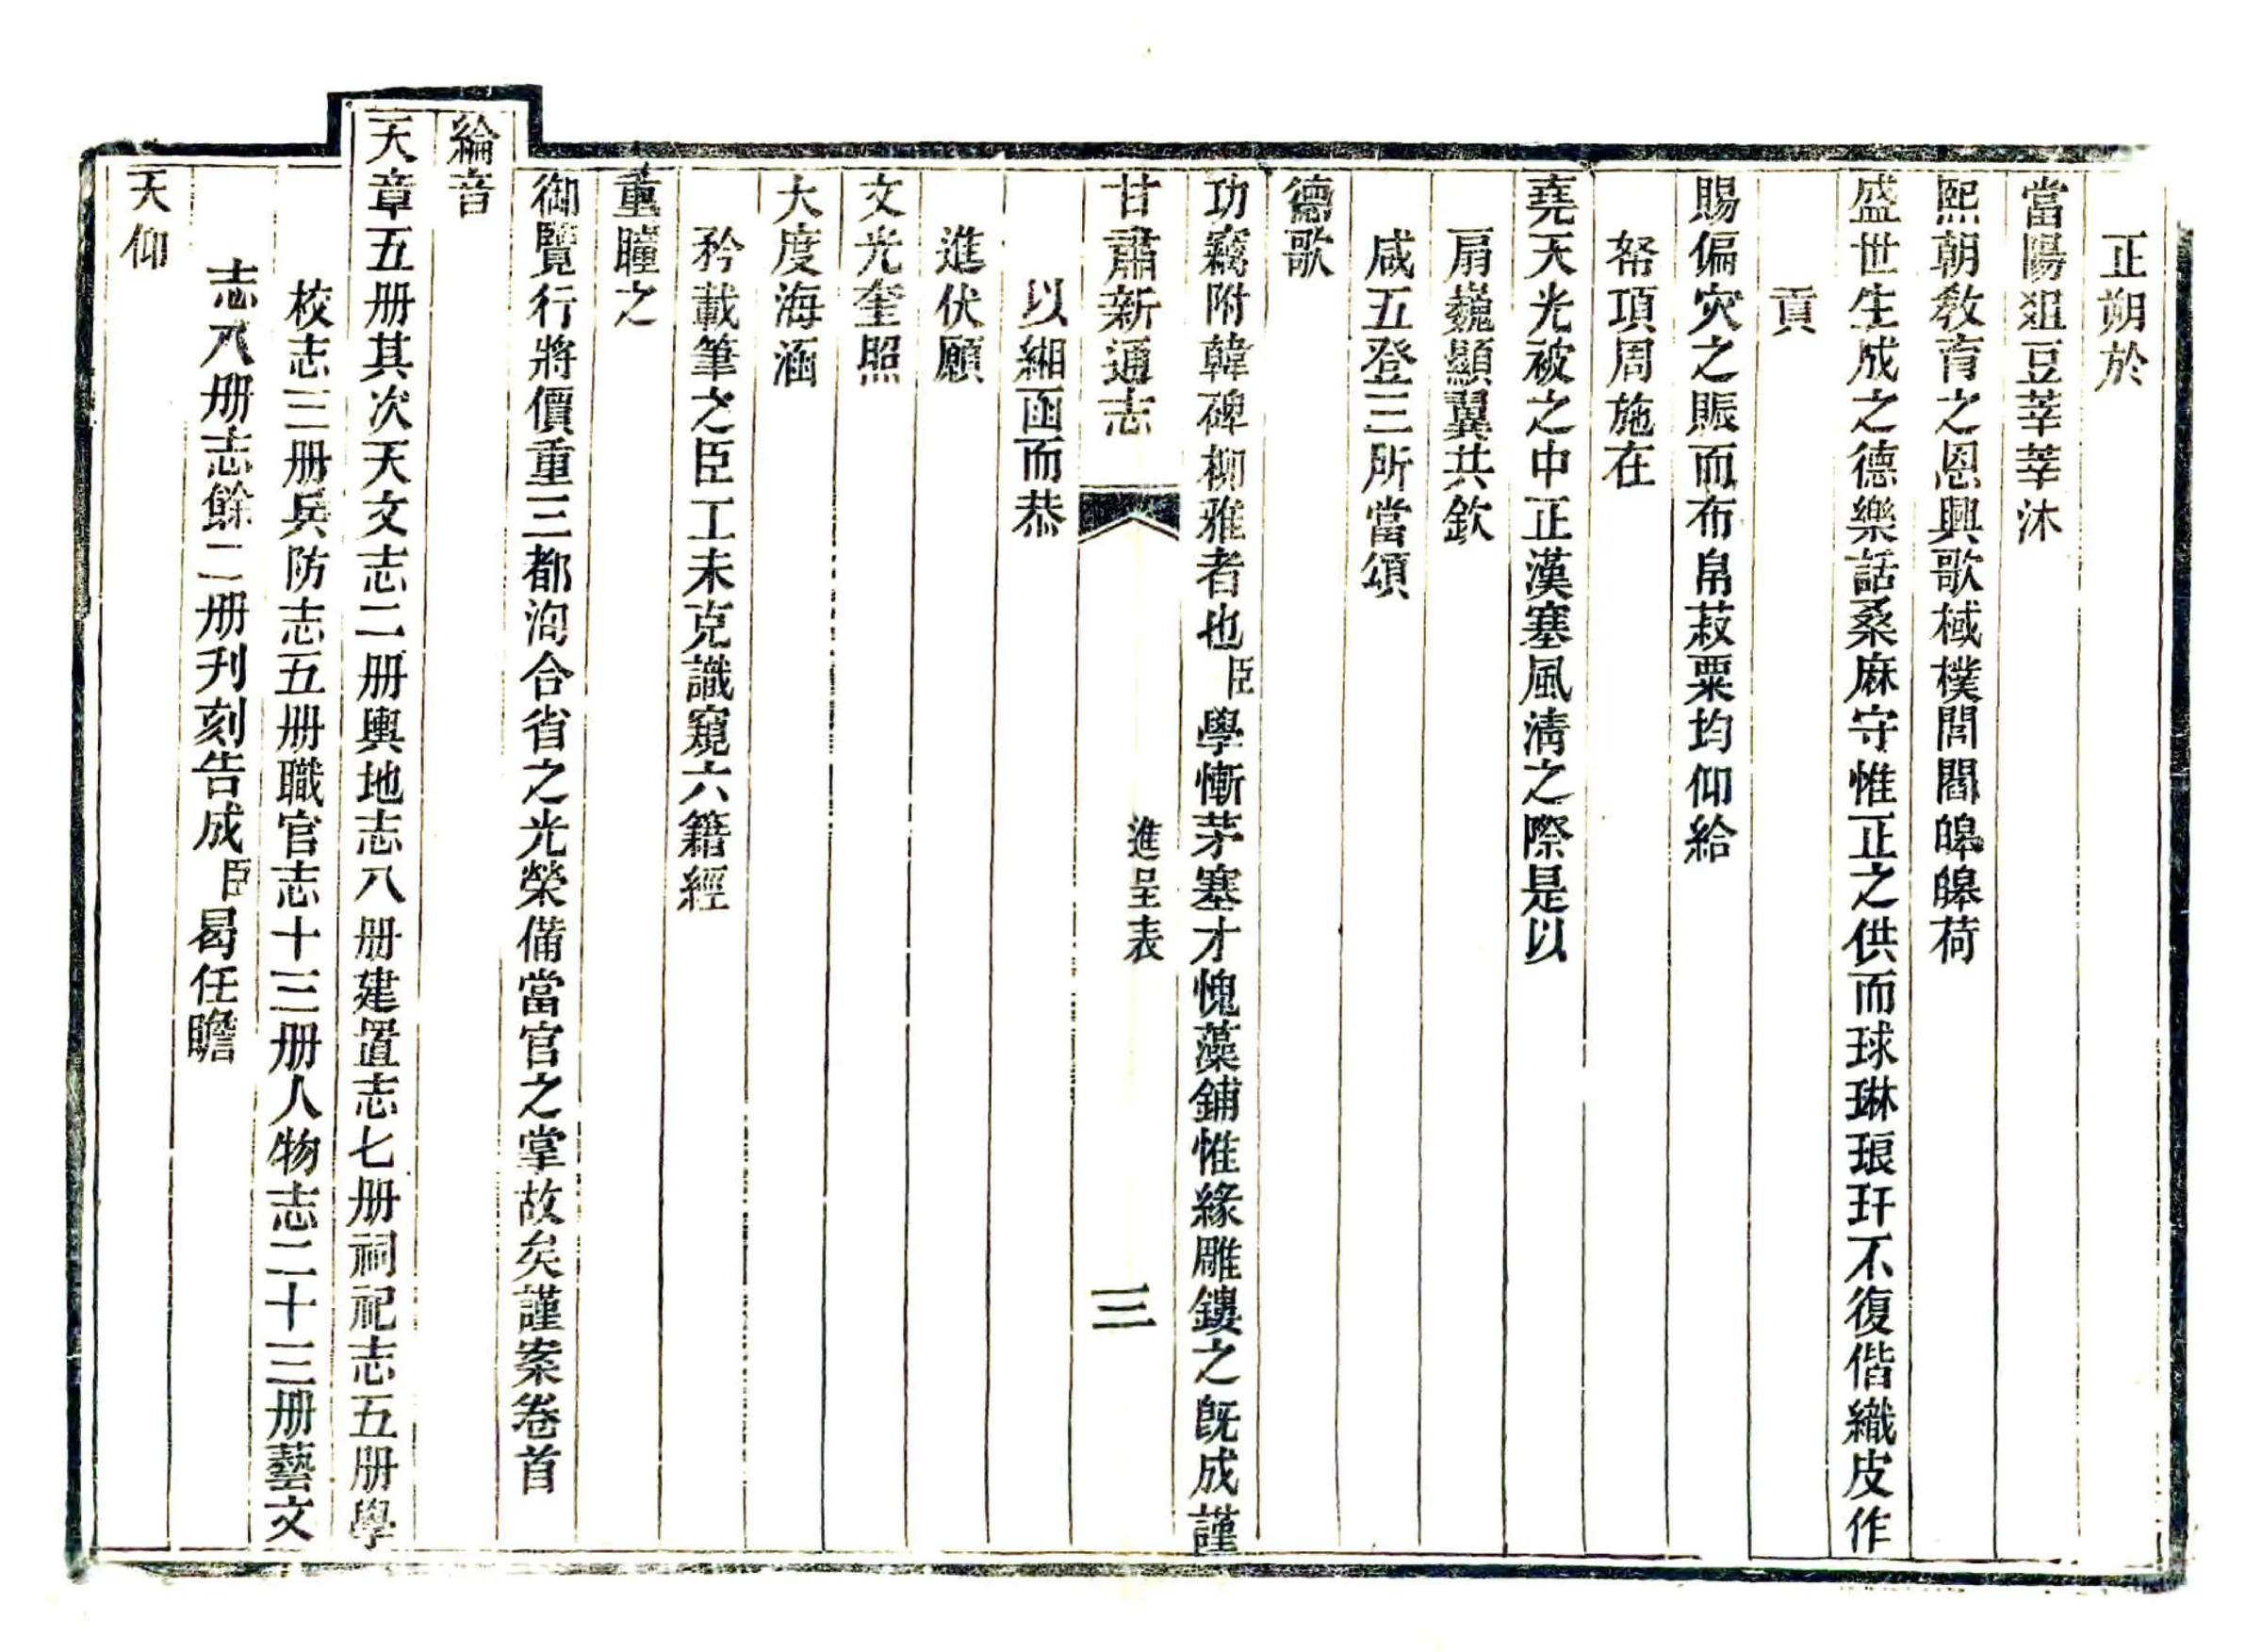 正朔於
當陽俎豆莘莘沐
熙朝教育之恩興歌棫樸誾誾皞皞荷
盛世生成之德樂話桑麻守惟正之供而球琳琅玕不復偕織皮作
貢
賜偏穴之賑而布帛菽粟均仰給
帑項周施在
堯天光被之中正漢塞風清之際是以
扃巍顯翼共欽
咸五登三所當頌
德歌
功竊附韓碑柳雅者也臣學慚茅塞才愧藻鋪惟緣雕鏤之既成謹
甘肅新通志
進呈表
三
以緗函而恭
進伏願
文光奎照
大度海涵
矜載筆之臣工未克識窺六籍經
重瞳之
御覽行將價重三都洵合省之光榮備當官之掌故矣謹案卷首
綸音
天章五册其次天文志二册輿地志八册建置志七册祠祀志五册學
校志三册兵防志五册職官志十三册人物志二十三册藝文
志八册志餘二册刋刻告成臣曷任瞻
天仰